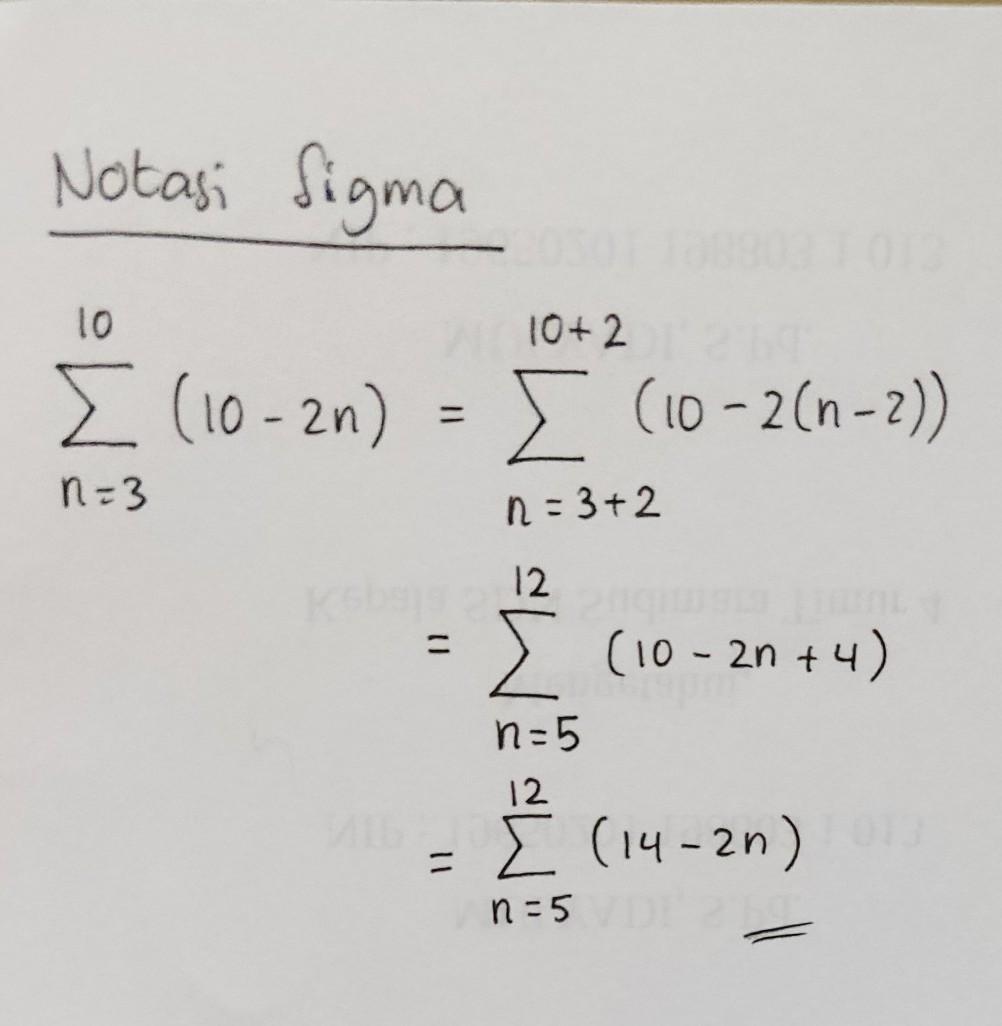 Notasi Sigma
10 10+2
∑ (10 - 2n) = ∑ (10 - 2(n-2))
n=3 n = 3+2
12
= ∑ (10 - 2n + 4)
n=5
12
= ∑ (14 - 2n)
n=5